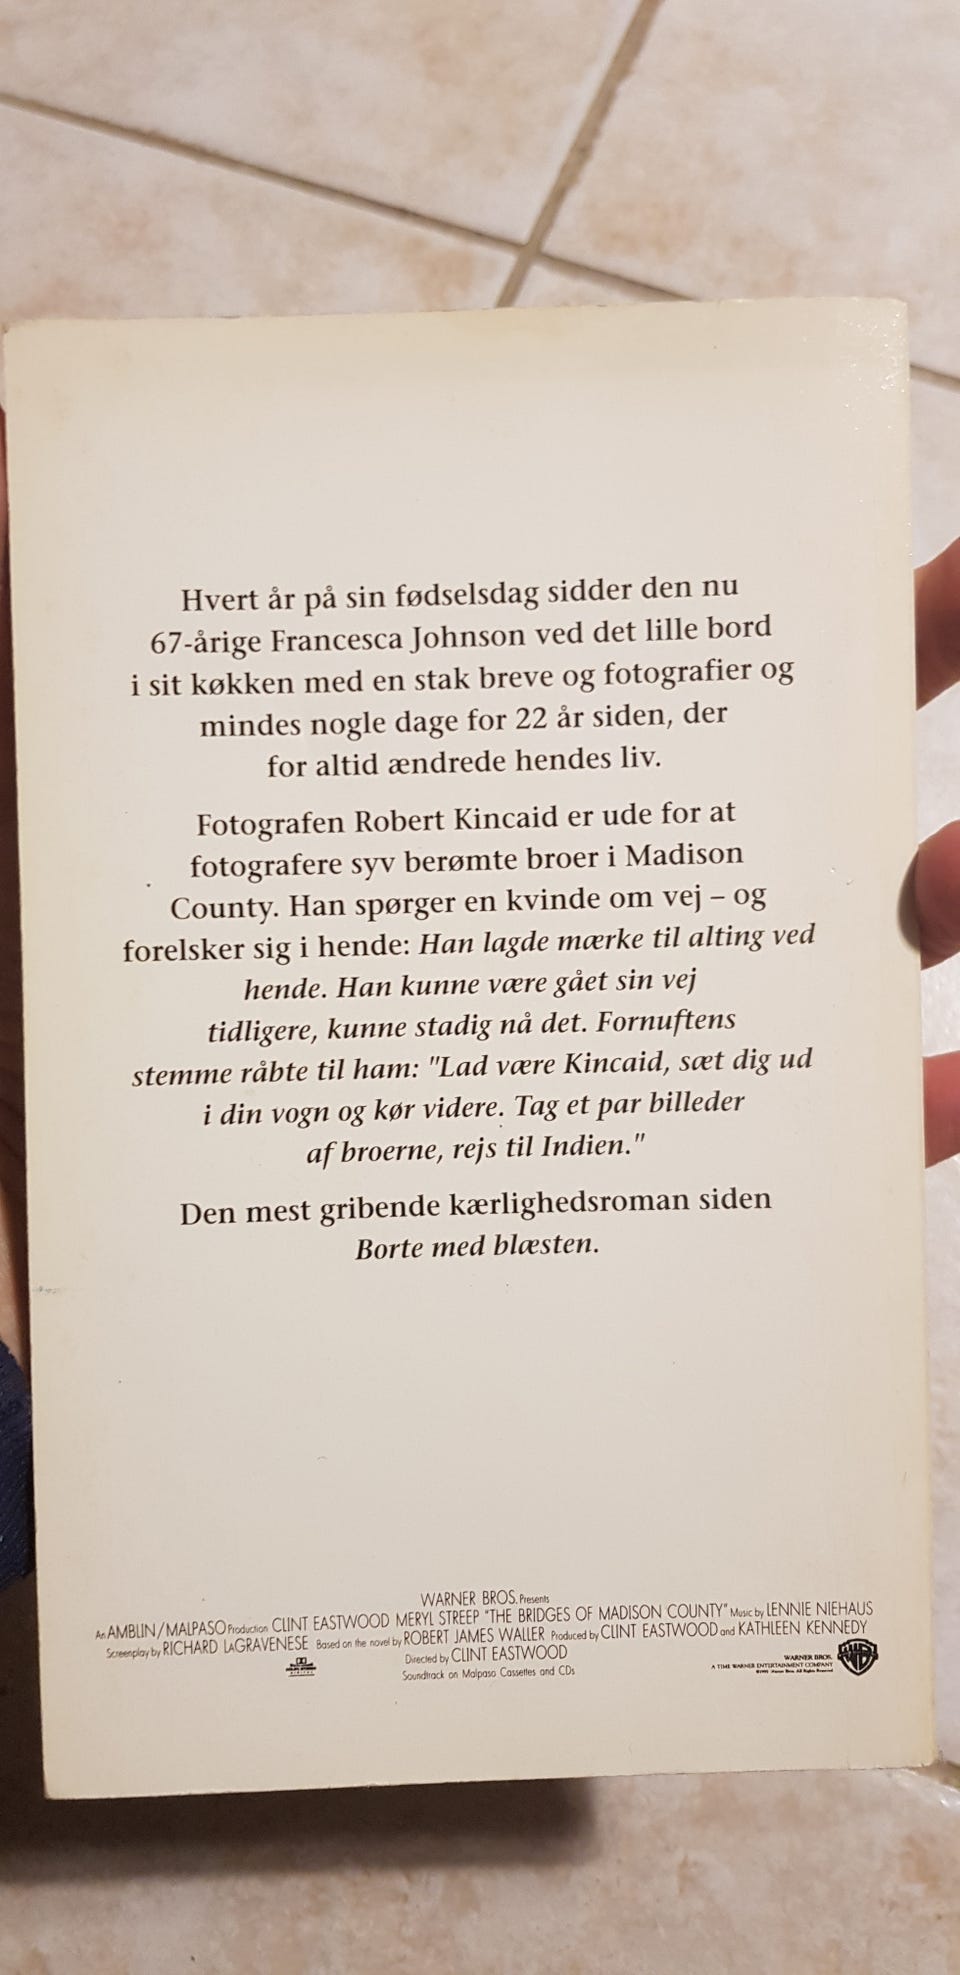 Hvert år på sin fødselsdag sidder den nu
67-årige Francesca Johnson ved det lille bord
i sit køkken med en stak breve og fotografier og
mindes nogle dage for 22 år siden, der
for altid ændrede hendes liv.
Fotografen Robert Kincaid er ude for at
fotografere syv berømte broer i Madison
County. Han spørger en kvinde om vej – og
forelsker sig i hende: Han lagde mærke til alting ved
hende. Han kunne være gået sin vej
tidligere, kunne stadig nå det. Fornuftens
stemme råbte til ham: "Lad være Kincaid, sæt dig ud
i din vogn og kør videre. Tag et par billeder
af broerne, rejs til Indien."
Den mest gribende kærlighedsroman siden
Borte med blæsten.
WARNER BROS. Presents
An AMBLIN/MALPASO Production CLINT EASTWOOD MERYL STREEP "THE BRIDGES OF MADISON COUNTY" Music by LENNIE NIEHAUS
Screenplay by RICHARD LAGRAVENESE Based on the novel by ROBERT JAMES WALLER Produced by CLINT EASTWOOD and KATHLEEN KENNEDY
Directed by CLINT EASTWOOD
Soundtrack on Malpaso Cassettes and CDs
WARNER BROS.
A TIME WARNER ENTERTAINMENT COMPANY
WB